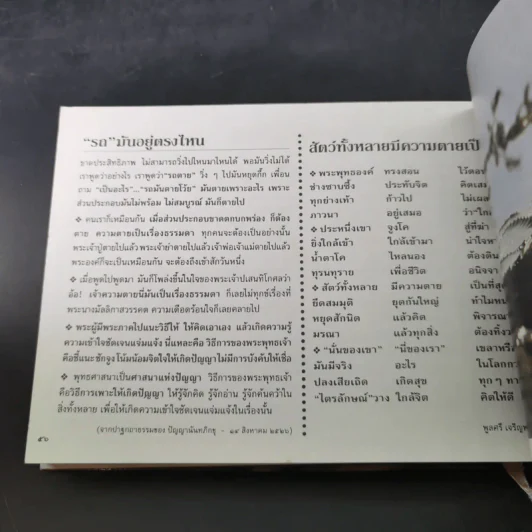 “รถ”มันอยู่ตรงไหน
ขาดประสิทธิภาพ ไม่สามารถวิ่งไปไหนมาไหนได้ พอมันวิ่งไม่ได้
เราพูดว่าอย่างไร เราพูดว่า“รถตาย” วิ่ง ๆ ไปมันหยุดกึ้ก เพื่อน
ถาม “เป็นอะไร”...“รถมันตายโว้ย” มันตายเพราะอะไร เพราะ
ส่วนประกอบมันไม่พร้อม ไม่สมบูรณ์ มันก็ตายไป
❖ คนเราก็เหมือนกัน เมื่อส่วนประกอบขาดตกบกพร่อง ก็ต้อง
ตาย ความตายเป็นเรื่องธรรมดา ทุกคนจะต้องเป็นอย่างนั้น
พระเจ้าปู่ตายไปแล้ว พระเจ้าย่าตายไปแล้ว เจ้าพ่อเจ้าแม่ตายไปแล้ว
พระองค์ก็จะเป็นเหมือนกัน จะต้องถึงเข้าสักวันหนึ่ง
❖ เมื่อพูดไปพูดมา มันก็โพล่งขึ้นในใจของพระเจ้าปเสนทิโกศลว่า
อ้อ! เจ้าความตายนี่มันเป็นเรื่องธรรมดา ก็เลยไม่ทุกข์เรื่องที่
พระนางมัลลิกาสวรรคต ความเดือดร้อนใจก็เลยคลายไป
❖ พระผู้มีพระภาคไปแนะวิธีให้ ให้คิดเอาเอง แล้วเกิดความรู้
ความเข้าใจชัดเจนแจ่มแจ้ง นี่แหละคือ วิธีการของพระพุทธเจ้า
คือชี้แนะชักจูงโน้มน้อมจิตใจให้เกิดปัญญาไม่มีการบังคับให้เชื่อ
❖ พุทธศาสนาเป็นศาสนาแห่งปัญญา วิธีการของพระพุทธเจ้า
คือวิธีการเพาะให้เกิดปัญญา ให้รู้จักคิด รู้จักอ่าน รู้จักค้นคว้าใน
สิ่งทั้งหลาย เพื่อให้เกิดความเข้าใจชัดเจนแจ่มแจ้งในเรื่องนั้น
(จากปาฐกถาธรรมของ ปัญญานันทภิกขุ - ๑๙ สิงหาคม ๒๕๒๐)
๕๖
สัตว์ทั้งหลายมีความตายเป็
❖ พระพุทธองค์ ทรงสอน ไว้ตอ
ช่างซานซึ้ง ประทับจิต คิดเสม
ทุกย่างเท้า ก้าวไป ไม่เผล
ภาวนา อยู่เสมอ ว่า“ไก
❖ ประหนึ่งเขา จูงโค สู่ที่ฆ่
ยิ่งใกล้เข้า ใกล้เข้ามา น่าใจห
น้ำตาโค ไหลนอง ต้องดิ้น
ทุรนทุราย เพื่อชีวิต อนิจจา
❖ สัตว์ทั้งหลาย มีความตาย เป็นที่สุ
ยึดสมมุติ ยุดกันใหญ่ ทำไมหน
หยุดสักนิด แล้วคิด พิจารณ
มรณา แล้วทุกสิ่ง ต้องทิ้งว
❖ “นั่นของเขา” “นี่ของเรา” เขลาหรื
มันมีจริง อะไร ในโลกกว
ปลงเสียเถิด เกิดสุข ทุก ๆ ท
“ไตรลักษณ์”วาง ใกล้จิต คิดให้ดี
พูลศรี เจริญพ